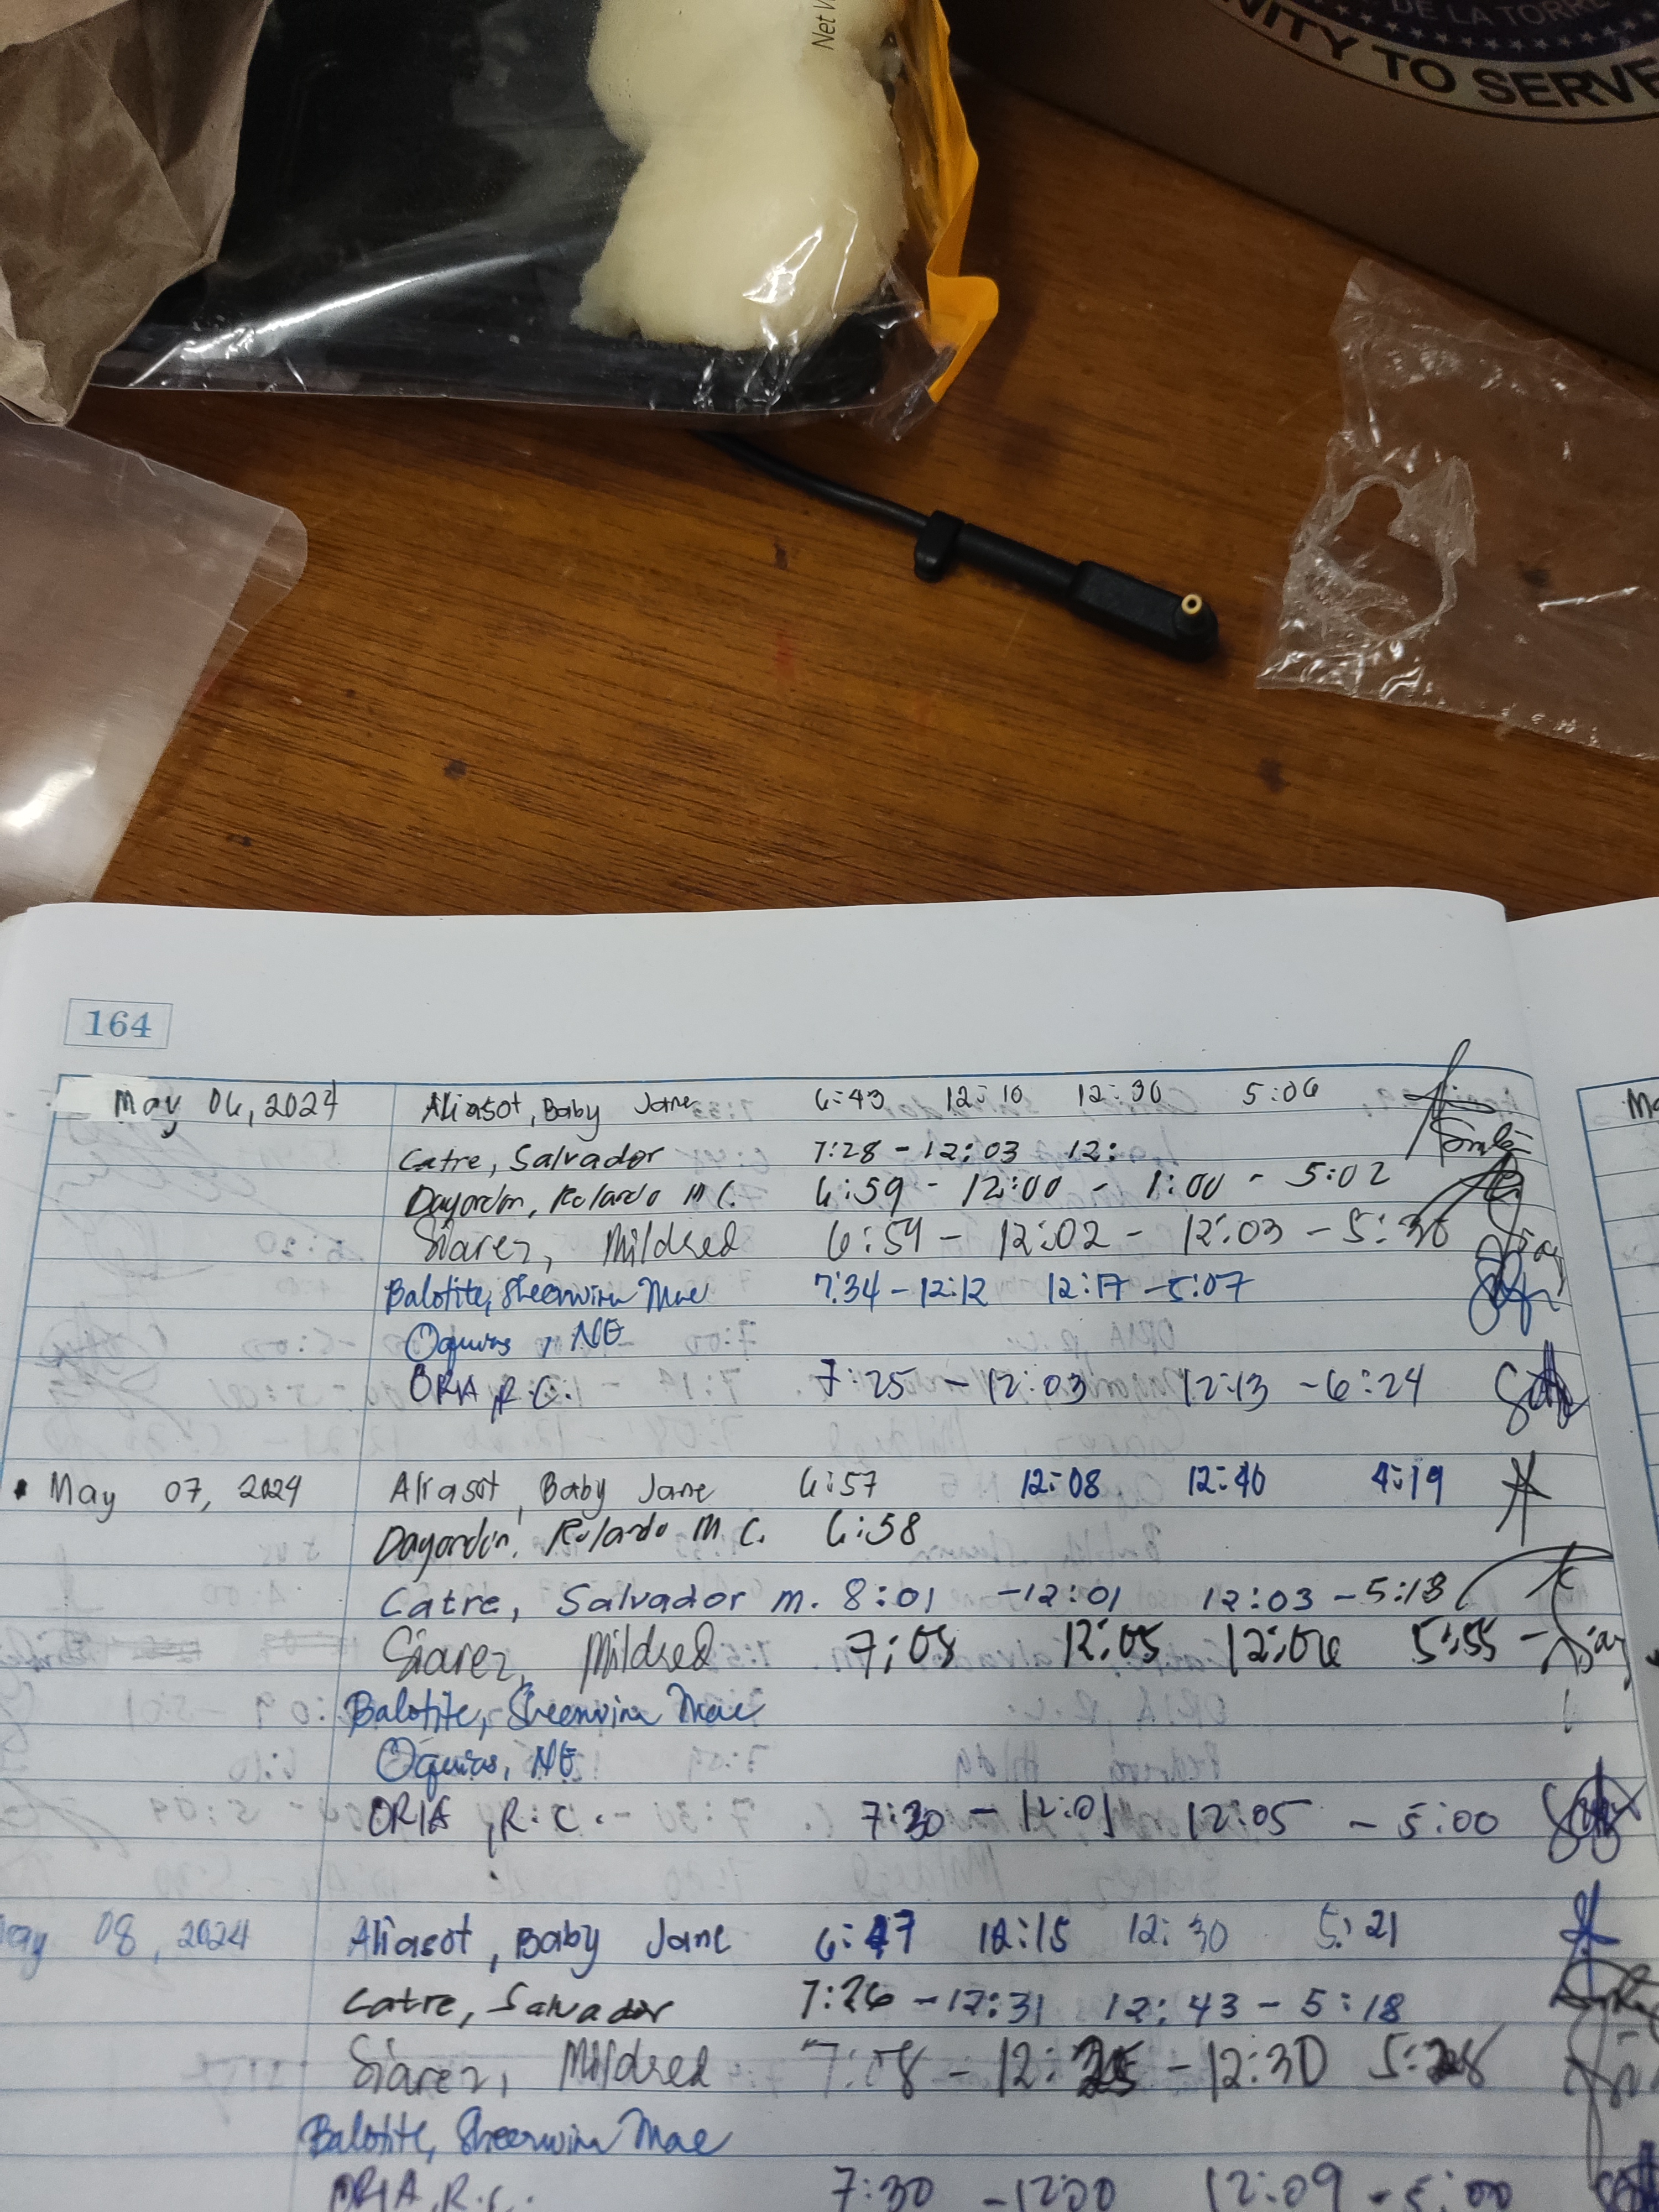 Net
DE LA TORRE
NITY TO SERVE
164
May 06, 2024 Aliasot, Baby Jane 6:43 12:10 12:30 5:06
Catre, Salvador 7:28 - 12:03 12:
Dayordin, Rolando M C. 6:59 - 12:00 - 1:00 - 5:02
Siarez, Mildred 6:59 - 12:02 - 12:03 - 5:30
Balotite, Sheerwina Mae 7:34 - 12:12 12:17 - 5:07
Oquias, NE
ORIA, R.C. 7:25 - 12:03 12:13 - 6:24
May 07, 2024 Aliasot, Baby Jane 6:57 12:08 12:40 4:19
Dayordin, Rolando M C. 6:58
Catre, Salvador M. 8:01 - 12:01 12:03 - 5:13
Siarez, Mildred 7:08 12:05 12:06 5:55 -
Balotite, Sheerwina Mae
Oquias, NE
ORIA, R.C. 7:30 - 12:01 12:05 - 5:00
May 08, 2024 Aliasot, Baby Jane 6:47 12:15 12:30 5:21
Catre, Salvador 7:26 - 12:31 12:43 - 5:18
Siarez, Mildred 7:08 - 12:25 - 12:30 5:28
Balotite, Sheerwina Mae
ORIA, R.C. 7:30 - 12:00 12:09 - 5:00